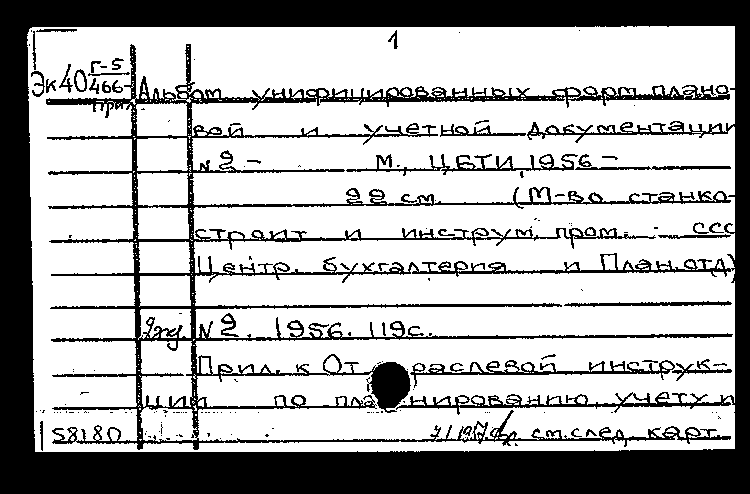 1
Эк40 Г-5
466-
Прил.
Альбом унифицированных форм плано-
вой и учетной документации
N2 - М., ЦБТИ, 1956 -
22 см. (М-во станко-
строит и инструм. пром. ссс
Центр. бухгалтерия и План. отд)
2жд. N2. 1956. 119с.
Прил. к От раслевой инструк-
ции по пла нированию, учету и
58180 см. след. карт.